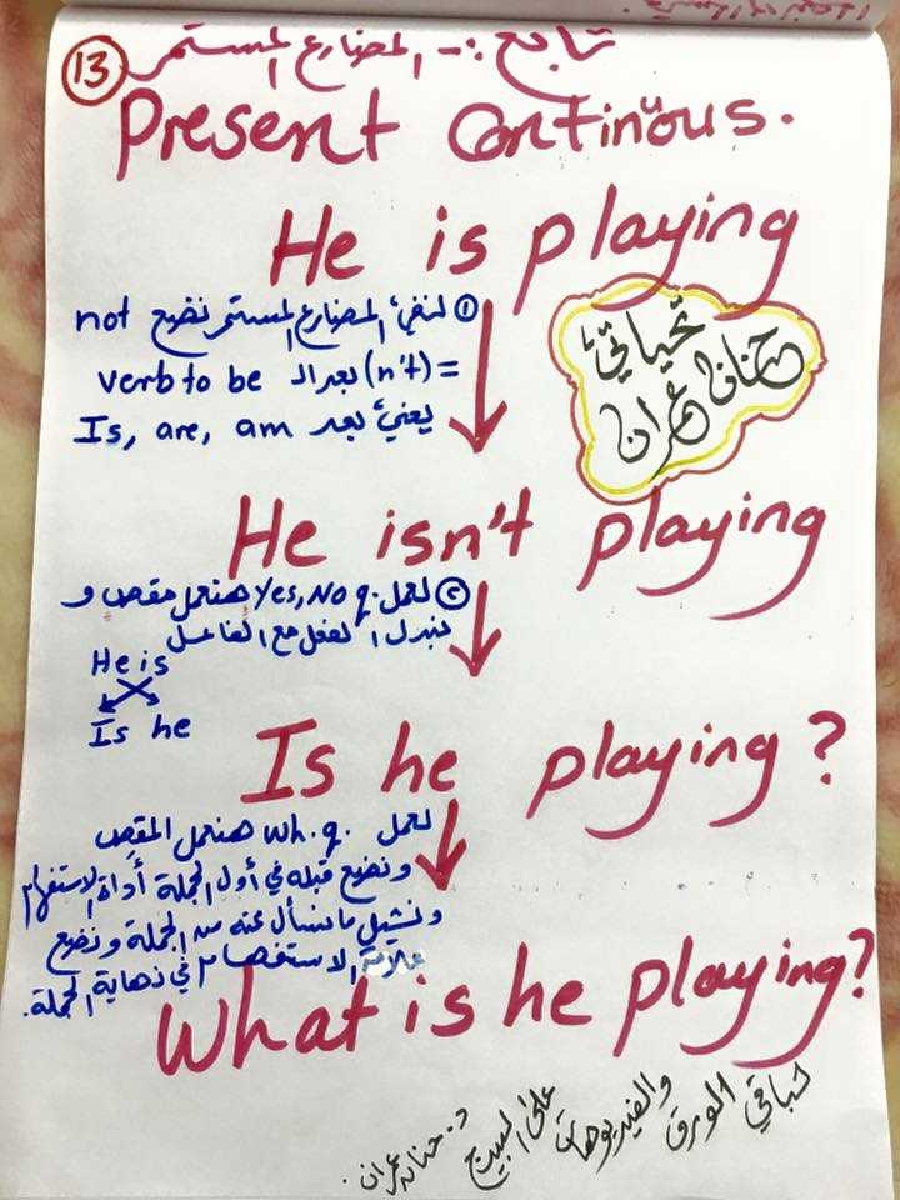 13
تابع :- المضارع المستمر
Present Continuous.
He is playing
① لنفي المضارع المستمر نضع not
= (n't) بعد الـ verb to be
يعني بعد Is, are, am
تحياتي
حنان عمران
He isn't playing
② لعمل Yes, No q. هنعمل مقص و
نبدل الفعل مع الفاعل
He is
Is he
Is he playing?
لعمل wh. q. هنعمل المقص
ونضع قبله في أول الجملة أداة الاستفهام
ونشيل ما نسأل عنه من الجملة ونضع
علامة الاستفهام في نهاية الجملة.
What is he playing?
لباقي الورق والفيديوهات على البيدج
د. حنان عمران.